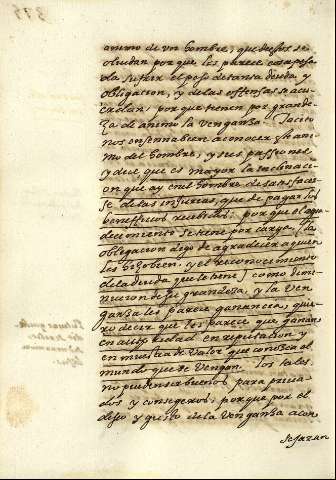 animo de un hombre, que destos se
olvidan porque les parece cosa pesa
da sufrir el peso de tanta deuda y
obligacion, y de las offensas se acu
erdan: porque tienen por grande
za de animo la venganza. Tacito
nos enseña bien a conocer el ani
mo del hombre, y sus passiones
y dice que es mayor la inclinaci
on que ay en el hombre de satisfacer
se de las injurias, que de pagar los
beneficios recibidos: porque el agra
decimiento se tiene por carga (la
obligacion digo de agradecer a quien
les hizo bien, y el reconocimiento
de la deuda que le tiene) como dimi
nucion de su grandeza, y la ven
ganza les parece ganancia, qui
ero decir que les parece que ganan
en auctoridad, en reputacion y
en muestra de valor que conozca el
mundo que se vengan. Los tales
no pueden ser buenos para priva
dos y consegeros: porque por el
deseo y gusto de la venganza acon
sejaran